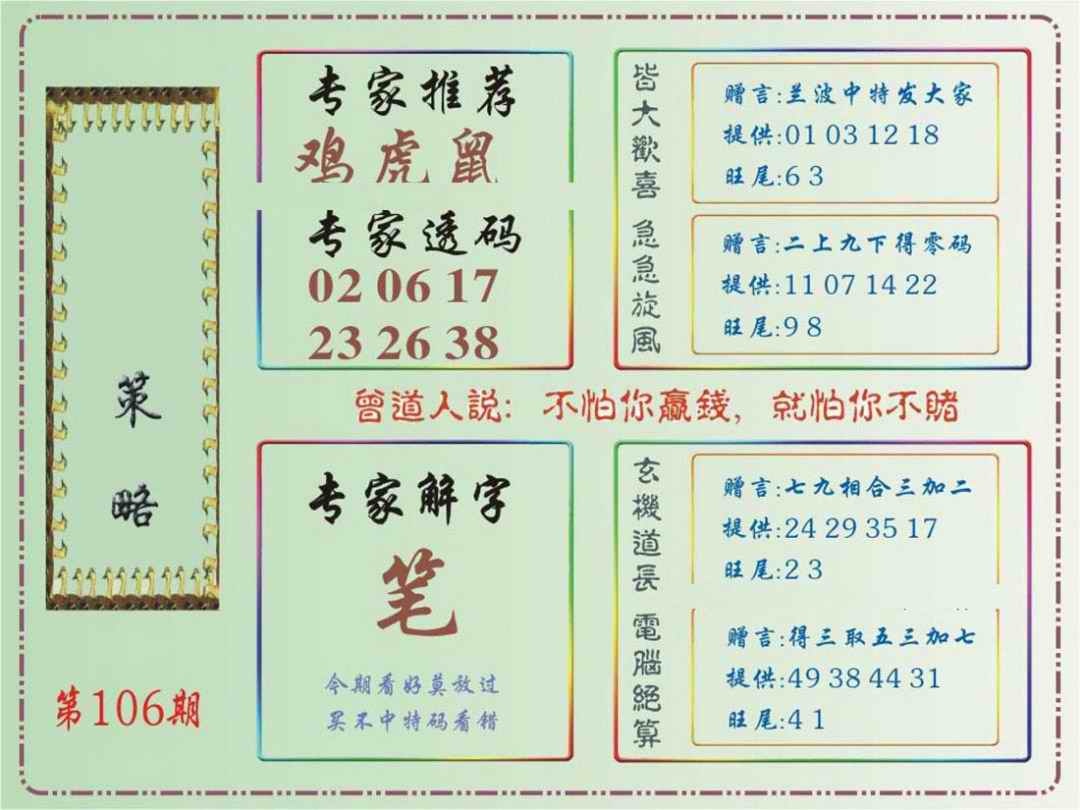 策略
第106期
专家推荐
鸡虎鼠
专家透码
02 06 17
23 26 38
皆大歡喜
赠言:兰波中特发大家
提供:01 03 12 18
旺尾:6 3
急急旋风
赠言:二上九下得零码
提供:11 07 14 22
旺尾:9 8
曾道人説: 不怕你贏錢, 就怕你不賭
专家解字
笔
今期看好莫放过
买不中特码看错
玄機道長
赠言:七九相合三加二
提供:24 29 35 17
旺尾:2 3
電腦絕算
赠言:得三取五三加七
提供:49 38 44 31
旺尾:4 1